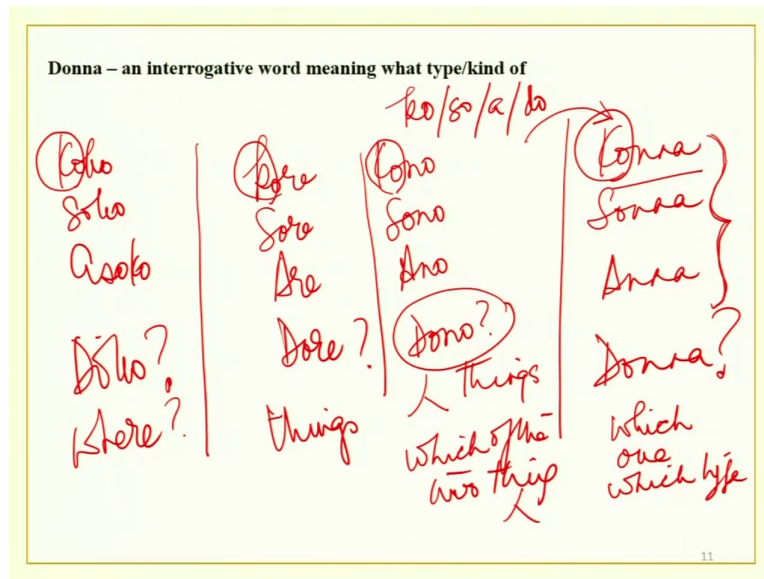 Donna – an interrogative word meaning what type/kind of
ko/so/a/do
Koko
Soko
Asoko
Doko?
Where?
Kore
Sore
Are
Dore?
things
Kono
Sono
Ano
Dono?
人 Things
which of the
two thing
人
Konna
Sonna
Anna
Donna?
which
one
which type
11